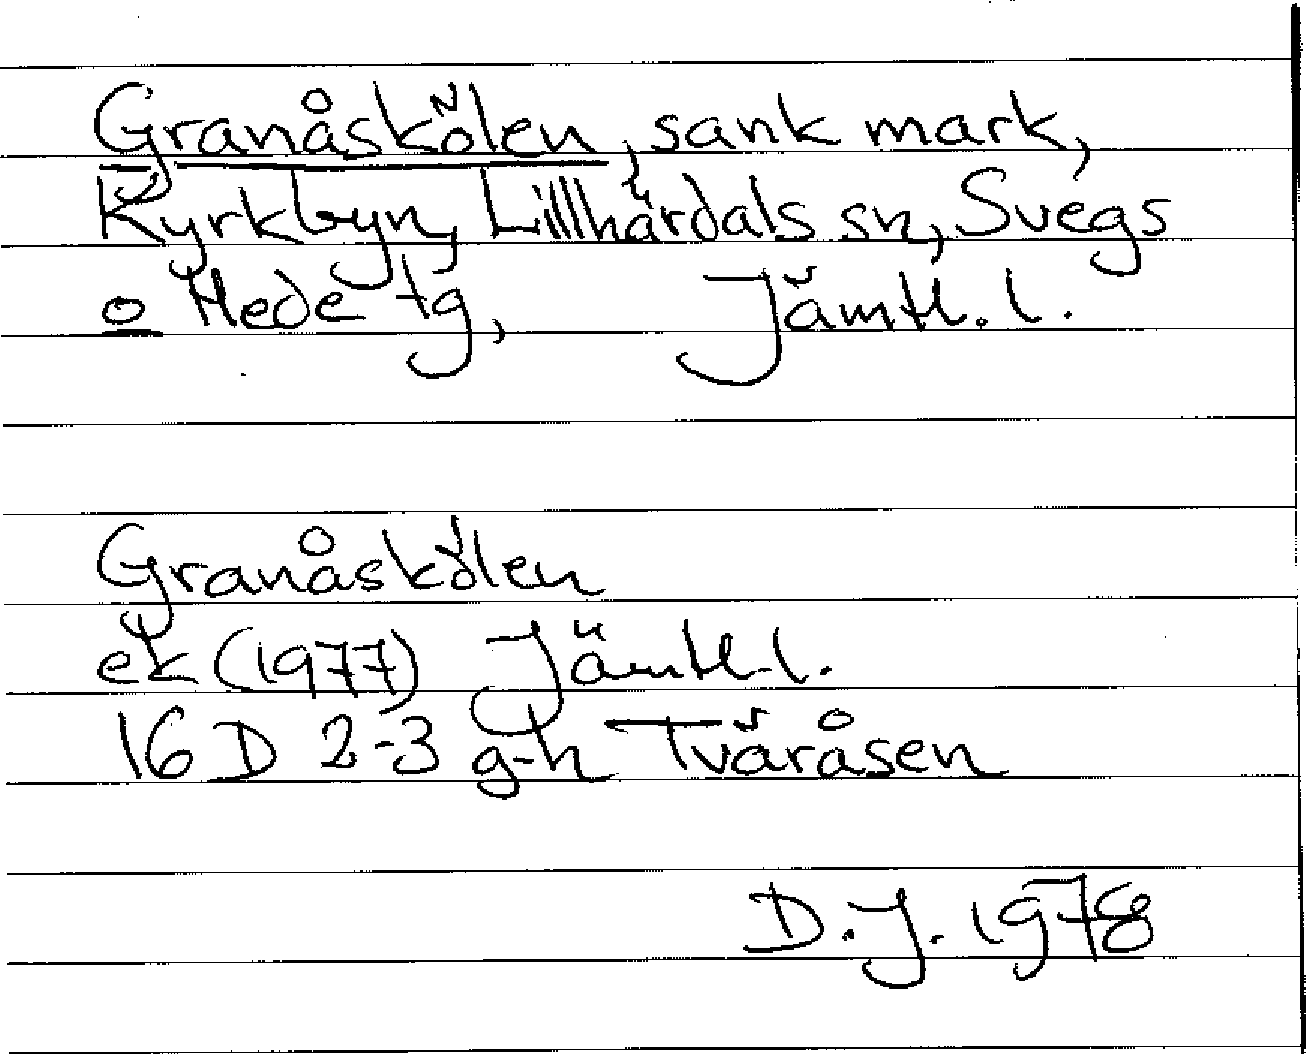 Granåskölen, sank mark,
Kyrkbyn, Lillhärdals sn, Svegs
o Hede tg, Jämtl. l.
Granåskölen
ek (1977) Jämtl. l.
16 D 2-3 g-h Tväråsen
D. J. 1978